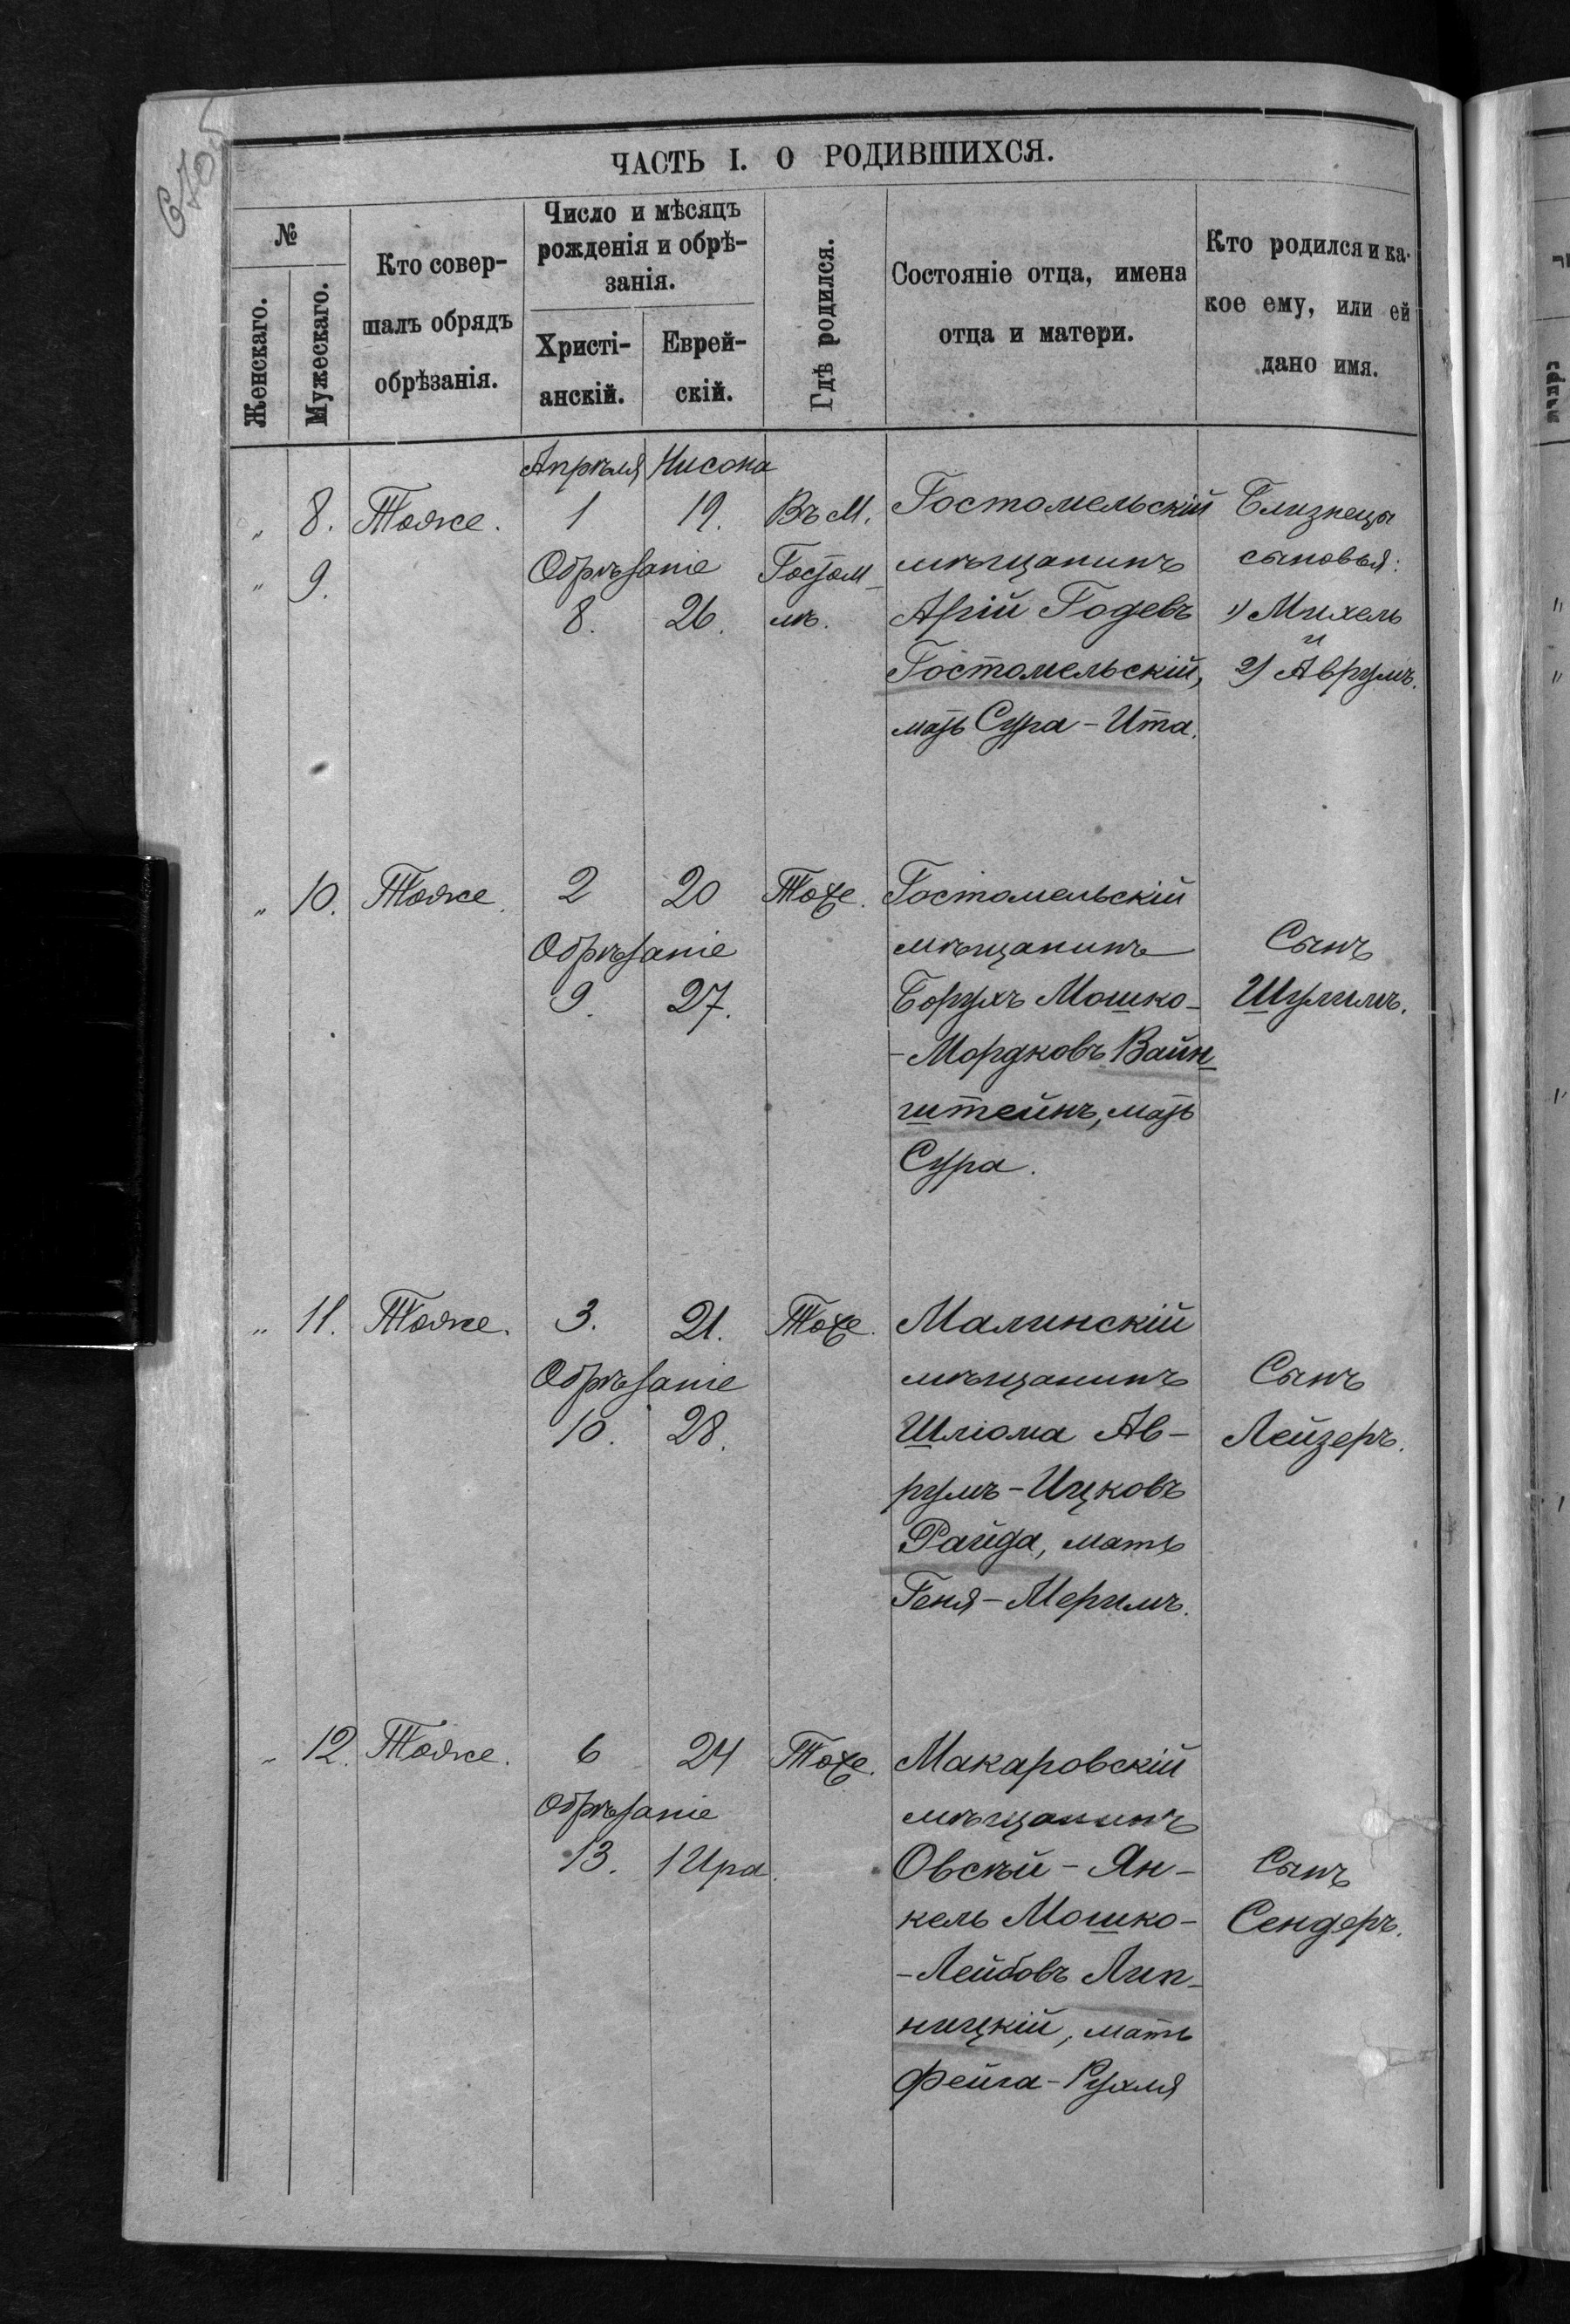 ЧАСТЬ I. О РОДИВШИХСЯ.
№
Женскаго.
Мужескаго.
Кто совер-
шалъ обрядъ
обрѣзанія.
Число и мѣсяцъ
рожденія и обрѣ-
занія.
Христі-
анскій.
Еврей-
скій.
Гдѣ родился.
Состояніе отца, имена
отца и матери.
Кто родился и ка-
кое ему, или ей
дано имя.
Апрѣля Нисона
" 8. Тоже. 1 19. Въ М. Гостомельскій Близнецы
" 9. Обрѣзаніе Гостом- мѣщанинъ сыновья:
8. 26. лѣ. Арій Годевъ 1) Михель
и
Гостомельскій, 2) Аврумъ.
мать Сура-Ита.
" 10. Тоже. 2 20 Тоже. Гостомельскій
Обрѣзаніе мѣщанинъ Сынъ
9. 27. Борухъ Мошко- Шулимъ.
-Мордковъ Вайн-
штейнъ, мать
Сура.
" 11. Тоже. 3. 21. Тоже. Малинскій
Обрѣзаніе мѣщанинъ Сынъ
10. 28. Шліома Ав- Лейзеръ.
румъ-Ицковъ
Райда, мать
Геня-Меримъ.
" 12. Тоже. 6 24 Тоже. Макаровскій
Обрѣзаніе мѣщанинъ
13. 1 Ира. Овсѣй-Ян- Сынъ
кель Мошко- Сендеръ.
-Лейбовъ Лип-
ницкій, мать
Фейга-Рухля